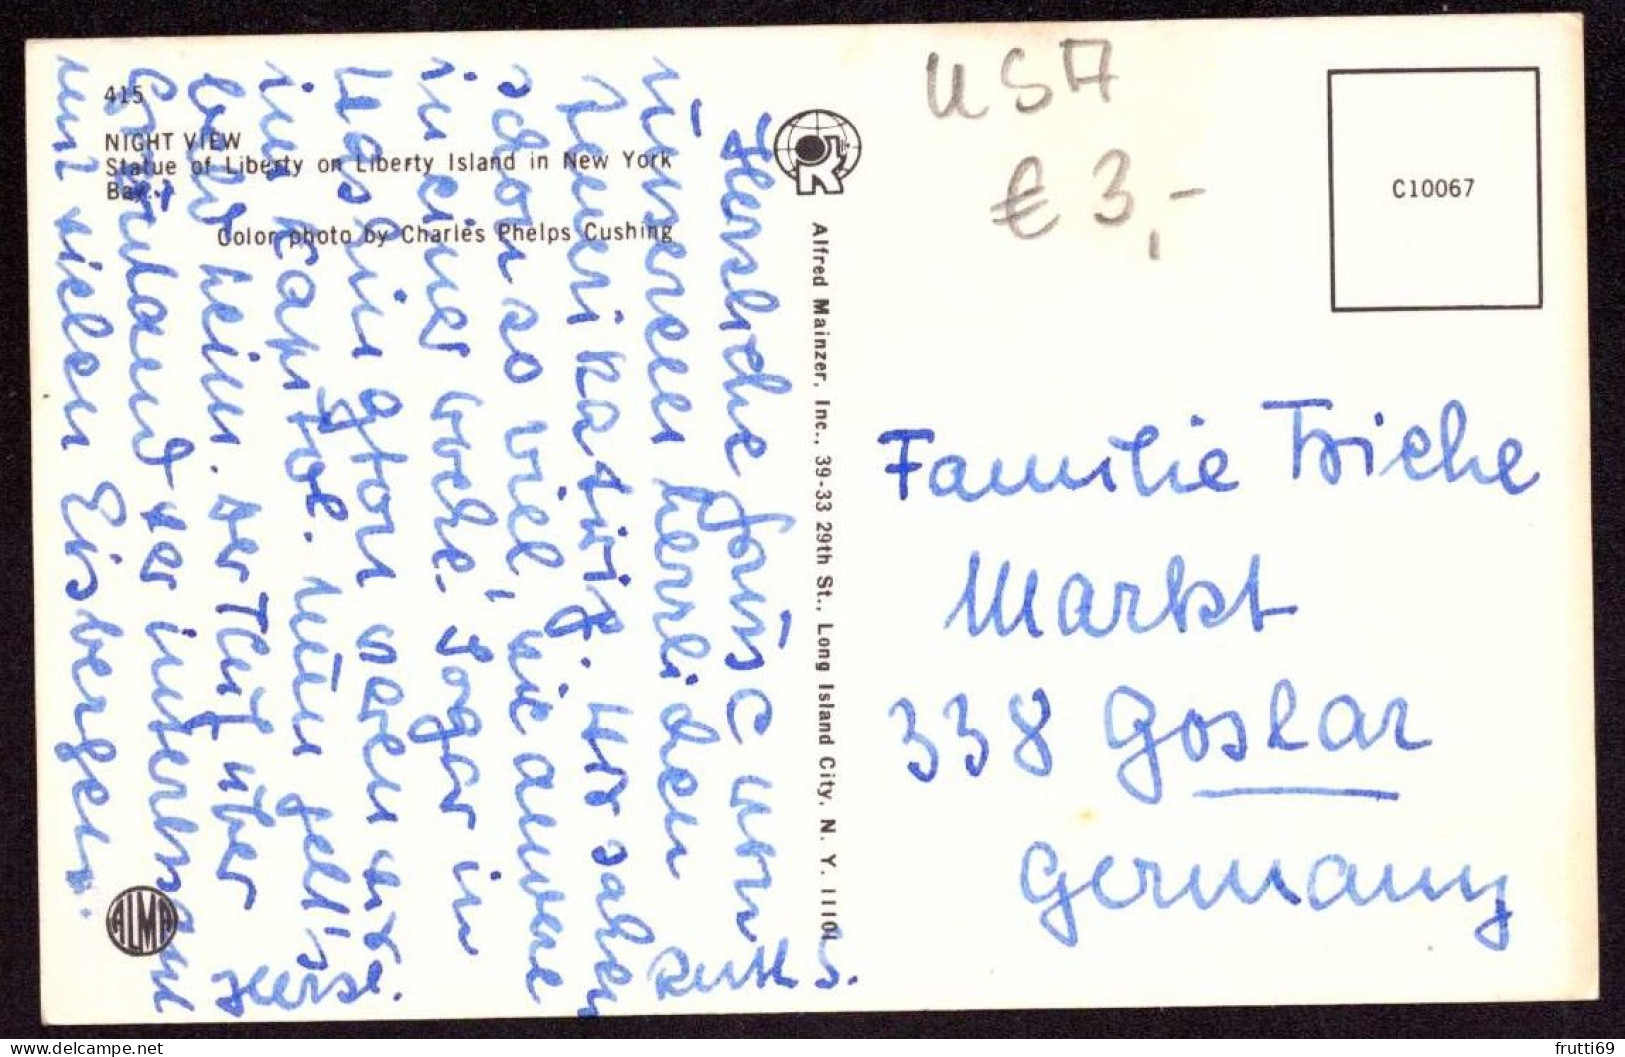 415
NIGHT VIEW
Statue of Liberty on Liberty Island in New York
Bay.
Color photo by Charles Phelps Cushing
Alfred Mainzer, Inc., 39-33 29th St., Long Island City, N. Y. 11101
ALMA
USA
€ 3,-
C10067
Familie
Markt
338 Goslar
Germany
Herzliche Grüsse von
unserem herrlichen
wir sahen
schon so viel, wie andere
in einer Woche. Sogar in
Washington waren wir
im Kapitol. Nun geht's
bald heim. Der Flug über
Grönland war interessant
mit vielen Eisbergen.
Ruth S.
frutti69